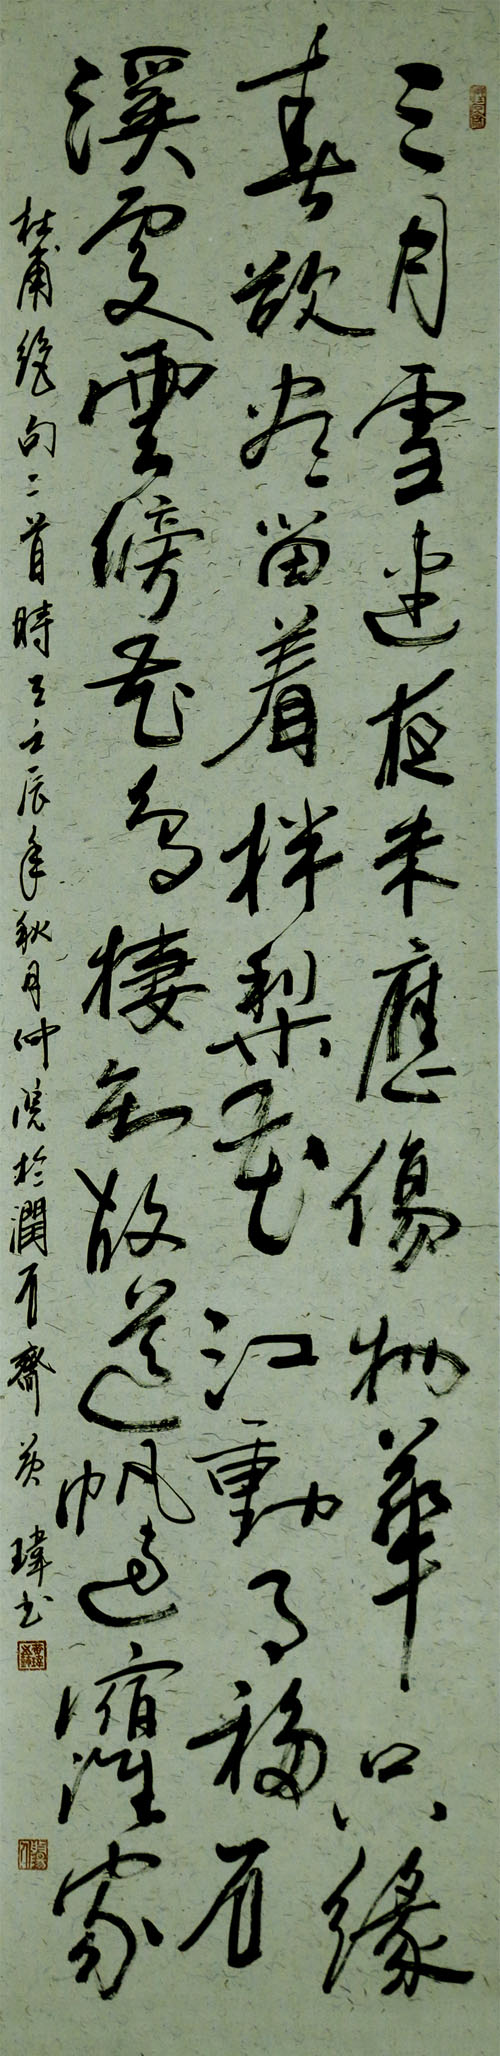 三月雪連夜未應傷物華只緣
春欲盡留着拌梨花江動月移石
溪虛雲傍花鳥棲知故道帆過宿誰家
杜甫絕句二首時在壬辰年秋月仲浣於潤石齋黃瑋書